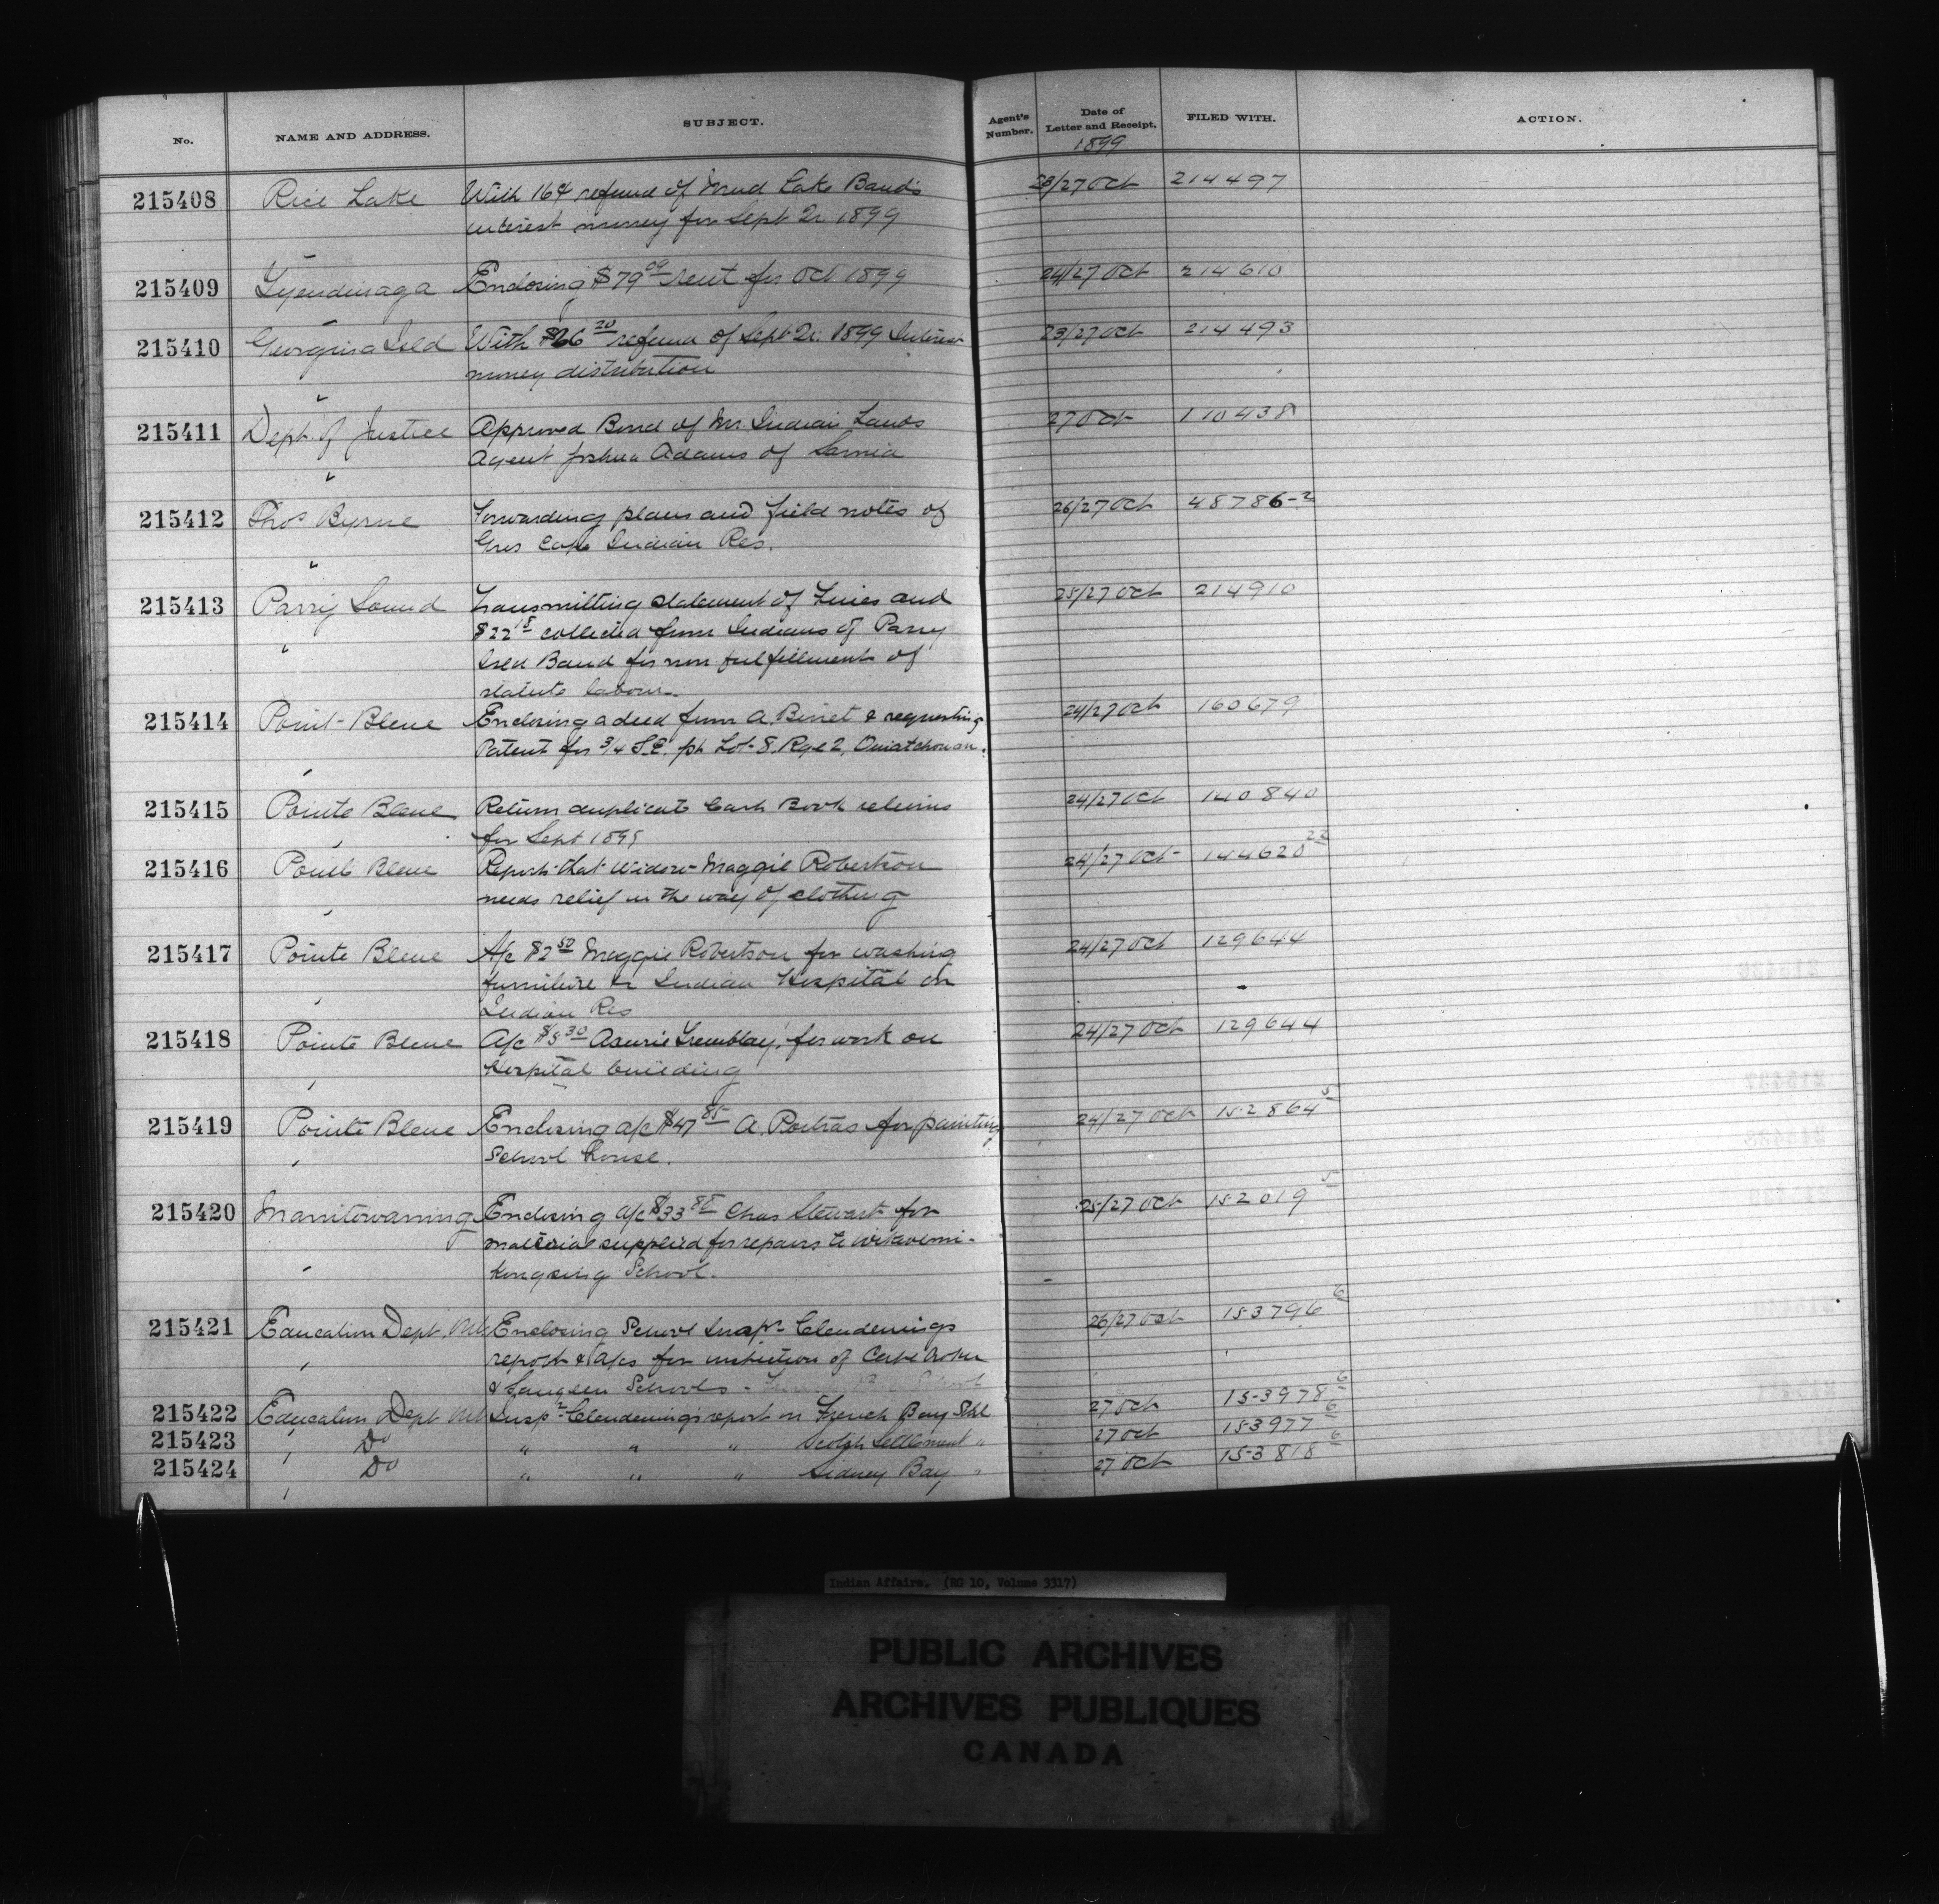 No. NAME AND ADDRESS. SUBJECT. Agent's Number. Date of Letter and Receipt. FILED WITH. ACTION.
1899
215408 Rice Lake With 16¢ refund of Mud Lake Band's 23/27 Oct 214497
interest money for Sept Qr 1899
215409 Tyendinaga Enclosing $79.09 rent for Oct 1899 24/27 Oct 214610
215410 Georgina Isld With $26.20 refund of Sept Qr. 1899 Interest 23/27 Oct 214493
money distribution
215411 Dept. of Justice Approved Bond of Mr. Indian Lands 27 Oct 110438
Agent Joshua Adams of Sarnia
215412 Thos Byrne Forwarding plans and field notes of 26/27 Oct 48786-2
Gros Cap Indian Res.
215413 Parry Sound Transmitting statement of Fines and 25/27 Oct 214910
$22 18 collected from Indians of Parry
Isld Band for non fulfillment of
statute labour.
215414 Point-Bleue Enclosing a deed from A. & requesting 24/27 Oct 160679
Patent for 3/4 S.E. pt Lot 8. Rge 2, Ouiatchouan.
215415 Pointe Bleue Return duplicate Cash Book returns 24/27 Oct 140840
for Sept 1899
215416 Pointe Bleue Reports that Widow Maggie Robertson 24/27 Oct 144620 22
needs relief in the way of clothing
215417 Pointe Bleue A/c $2.50 Maggie Robertson for washing 24/27 Oct 129644
furniture in Indian Hospital on
Indian Res
215418 Pointe Bleue A/c 30 Tremblay, for work on 24/27 Oct 129644
Hospital building
215419 Pointe Bleue Enclosing a/c $47 85 A. Poitras for painting 24/27 Oct 152864 5
School house.
215420 Manitowaning Enclosing a/c $33 85 Chas Stewart for 25/27 Oct 152019 5
material supplied for repairs to Wikwemi-
kongsing School.
215421 Education Dept. Enclosing School Inspr Clendenings 26/27 Oct 153796 6
report & a/cs for inspection of Cape Croker
& Saugeen Schools -
215422 Education Dept Inspr Clendening's report on French Bay Schl 27 Oct 153978 6
215423 Do " " " Scotch Settlement " 27 Oct 153977 6
215424 Do " " " Sidney Bay " 27 Oct 153818 6
Indian Affairs. (RG 10, Volume 3317)
PUBLIC ARCHIVES
ARCHIVES PUBLIQUES
CANADA